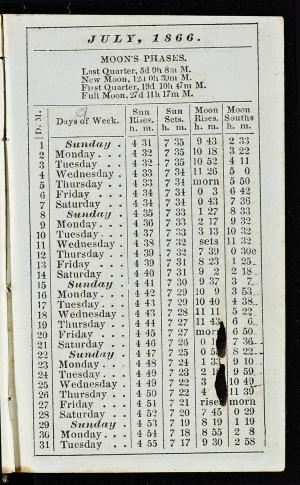 JULY, 1866.
MOON'S PHASES.
Last Quarter, 5d 9h 8m M.
New Moon, 12d 0h 39m M.
First Quarter, 19d. 10h 47m M.
Full Moon. 27d 11h 17m M.
D. M. Days of Week. Sun Rises. h. m. Sun Sets. h. m. Moon Rises. h. m. Moon Souths h. m.
1 Sunday . . 4 31 7 35 9 43 2 33
2 Monday . . . 4 32 7 35 10 18 3 22
3 Tuesday . . 4 32 7 35 10 52 4 11
4 Wednesday 4 33 7 34 11 26 5 0
5 Thursday . . 4 33 7 34 morn 5 50
6 Friday . . . 4 34 7 34 0 3 6 42
7 Saturday . . 4 34 7 34 0 43 7 36
8 Sunday . . 4 35 7 33 1 27 8 33
9 Monday . . . 4 36 7 33 2 17 9 32
10 Tuesday . . 4 37 7 33 3 13 10 32
11 Wednesday 4 38 7 32 sets 11 32
12 Thursday . . 4 39 7 32 7 39 0 30e
13 Friday . . . 4 39 7 31 8 23 1 25
14 Saturday . . 4 40 7 31 9 2 2 18
15 Sunday . . 4 41 7 30 9 37 3 7
16 Monday . . . 4 42 7 29 10 9 3 53
17 Tuesday . . 4 43 7 29 10 40 4 38
18 Wednesday 4 43 7 28 11 11 5 22
19 Thursday . . 4 44 7 27 11 43 6 6
20 Friday . . . 4 45 7 27 morn 6 50
21 Saturday . . 4 46 7 26 0 7 36
22 Sunday . . 4 47 7 25 0 8 22
23 Monday . . . 4 48 7 24 1 9 10
24 Tuesday . . 4 49 7 23 2 9 59
25 Wednesday 4 49 7 22 3 10 49
26 Thursday . . 4 50 7 22 4 11 39
27 Friday . . . 4 51 7 21 rises morn
28 Saturday . . 4 52 7 20 7 45 0 29
29 Sunday . . 4 53 7 19 8 19 1 19
30 Monday . . . 4 54 7 18 8 55 2 8
31 Tuesday . . 4 55 7 17 9 30 2 58